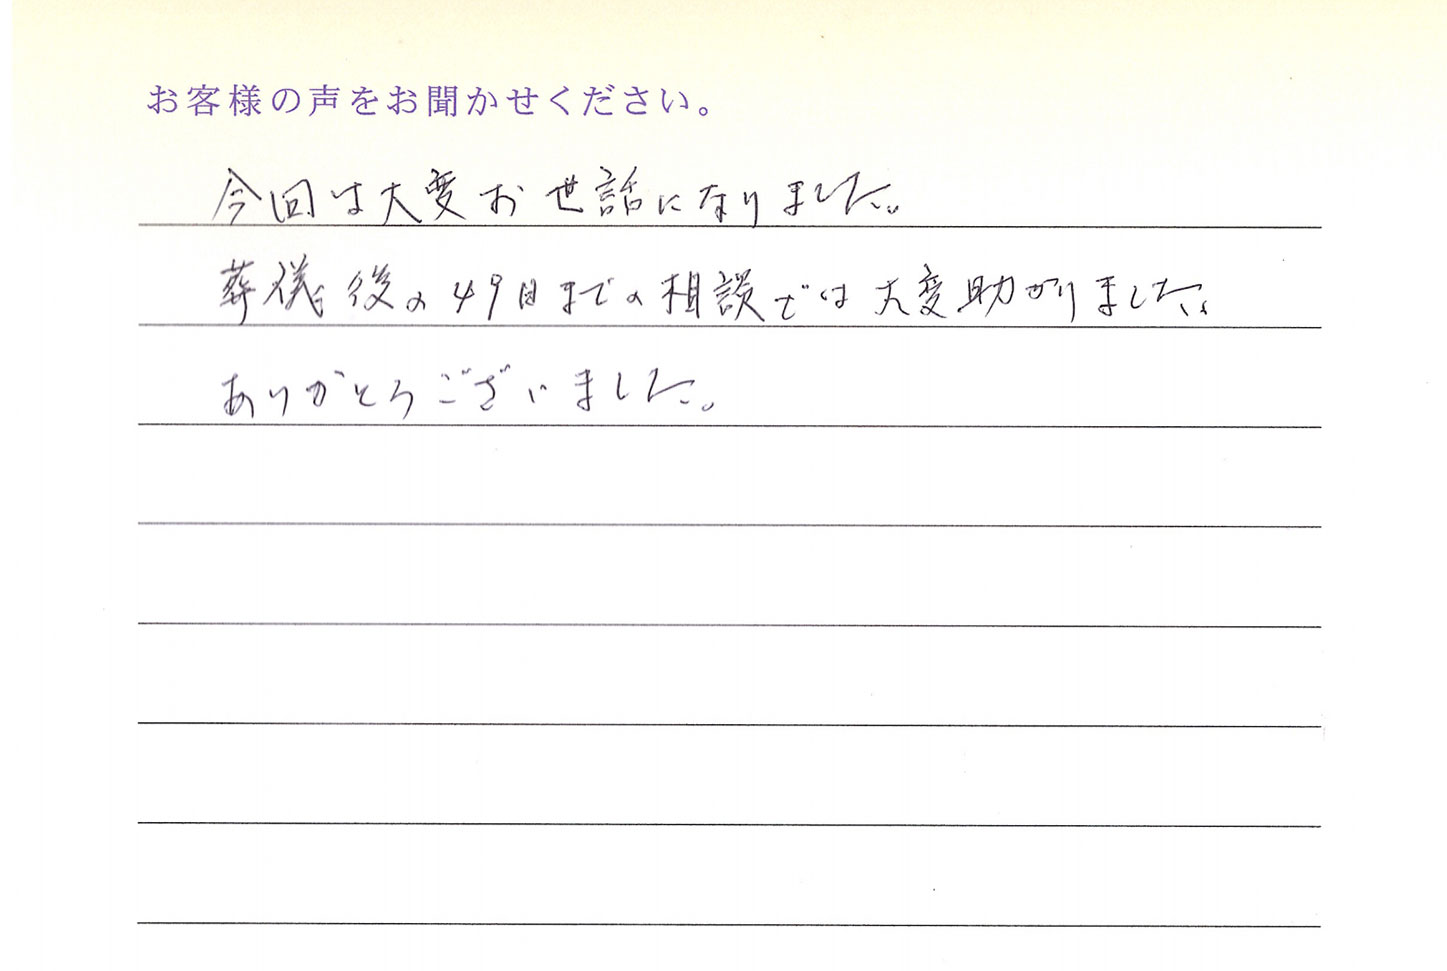 お客様の声をお聞かせください。
今回は大変お世話になりました。
葬儀後の49日までの相談では大変助かりました。
ありがとうございました。